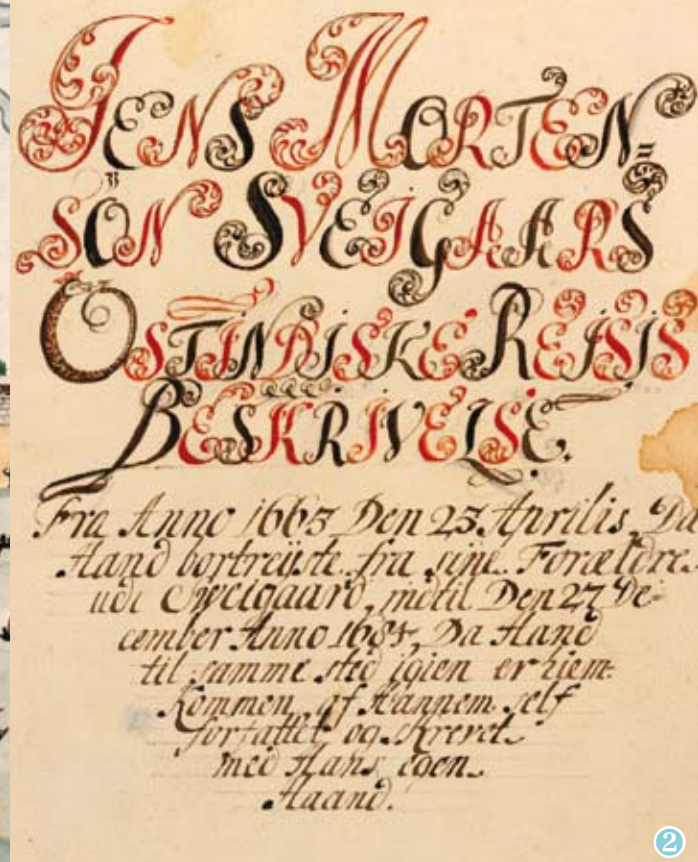 JENS MORTEN=
SØN SVEIGAARS
OSTINDISKE REISIS
BESKRIVELSE.
Fra Anno 1663 Den 23 Aprilis, Da
Hand bortreijste fra sine Forældre
udi Sweigaard, indtil Den 27 De-
cember Anno 1684, Da Hand
til samme sted igien er hiem
Kommen, af Hannem self
forfattet og skrevet
med Hans egen
Haand.
2